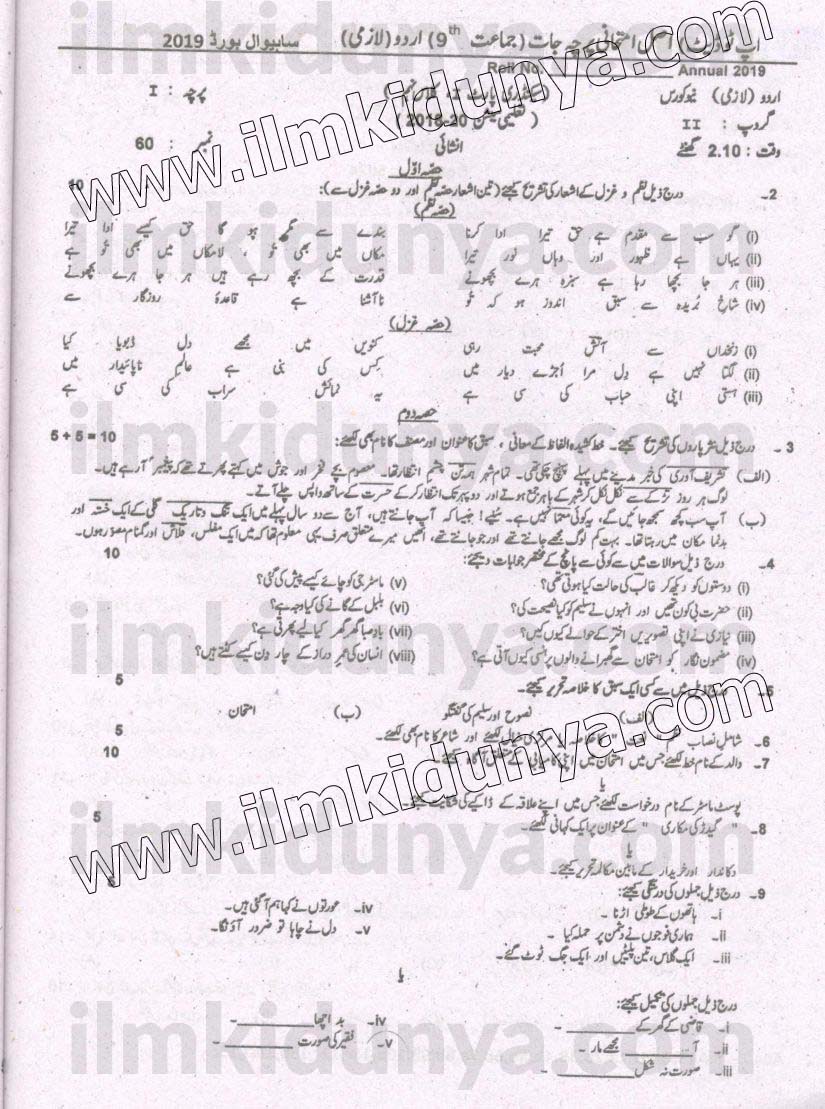 اپ ٹو ڈیٹ اصل امتحانی پرچہ جات (جماعت 9th) اردو (لازمی) ساہیوال بورڈ 2019
Roll No. Annual 2019
اردو (لازمی) نیو کورس (سیکنڈری پارٹ I، کلاس نہم) پرچہ : I
گروپ : II (تعلیمی سیشن 20-2018)
وقت : 2.10 گھنٹے انشائی نمبر : 60
حصہ اول
2۔ درج ذیل نظم و غزل کے اشعار کی تشریح کیجئے (تین اشعار حصہ نظم اور دو حصہ غزل سے): 10
(حصہ نظم)
(i) گو سب سے مقدم ہے حق تیرا ادا کرنا بندے سے مگر ہو گا حق کیسے ادا تیرا
(ii) یہاں ہے ظہور اور وہاں نور تیرا مکاں میں بھی تُو ، لامکاں میں بھی تُو ہے
(iii) ہر جا بچھا رہا ہے سبزہ ہرے بچھونے قدرت کے بچھ رہے ہیں ہر جا ہرے بچھونے
(iv) شاخِ بُریدہ سے سبق اندوز ہو کہ تُو ناآشنا ہے قاعدۂ روزگار سے
(حصہ غزل)
(i) زنخداں سے آتش محبت رہی کنویں میں مجھے دل ڈبویا کیا
(ii) لگتا نہیں ہے دل مرا اُجڑے دیار میں کِس کی بنی ہے عالمِ ناپائیدار میں
(iii) ہستی اپنی حباب کی سی ہے یہ نمائش سراب کی سی ہے
حصہ دوم
3 ۔ درج ذیل نثر پاروں کی تشریح کیجئے۔ خط کشیدہ الفاظ کے معانی ، سبق کا عنوان اور مصنف کا نام بھی لکھئے: 5 + 5 = 10
(الف) تشریف آوری کی خبر مدینے میں پہلے پہنچ چکی تھی۔ تمام شہر ہمہ تن چشمِ انتظار تھا۔ معصوم بچے فخر اور جوش میں کہتے پھرتے تھے کہ پیغمبر آ رہے ہیں۔
لوگ ہر روز تڑکے سے نکل نکل کر شہر کے باہر جمع ہوتے اور دوپہر تک انتظار کر کے حسرت کے ساتھ واپس چلے آتے۔
(ب) آپ سب کچھ سمجھ جائیں گے، یہ کوئی معما نہیں ہے۔ سنیے! جیسا کہ آپ جانتے ہیں، آج سے دو سال پہلے میں ایک تنگ و تاریک گلی کے ایک خستہ اور
بدنما مکان میں رہتا تھا۔ بہت کم لوگ مجھے جانتے تھے اور جو جانتے تھے، انھیں میرے متعلق صرف یہی معلوم تھا کہ میں ایک مفلس، قلاش اور گمنام مصور ہوں۔
4۔ درج ذیل سوالات میں سے کوئی سے پانچ کے مختصر جوابات دیجئے: 10
(i) دوستوں کو دیکھ کر غالب کی حالت کیا ہوتی تھی؟ (v) ماسٹر جی کو چائے کیسے پیش کی گئی؟
(ii) حضرت بی کون تھیں اور انہوں نے سلیم کو کیا نصیحت کی؟ (vi) بلبل کے گانے کی کیا وجہ ہے؟
(iii) نیازی نے اپنی تصویریں اختر کے حوالے کیوں کیں؟ (vii) بادِ صبا گھر گھر کیا لیے پھرتی ہے؟
(iv) مضمون نگار کو امتحان سے گھبرانے والوں پر ہنسی کیوں آتی ہے؟ (viii) انسان کی عمرِ دراز کے چار دِن کیسے کٹتے ہیں؟
5۔ درج ذیل میں سے کسی ایک سبق کا خلاصہ تحریر کیجئے۔ 5
(الف) نصوح اور سلیم کی گفتگو (ب) امتحان
6۔ شامل نصاب نظم خلاصہ مرکزی خیال لکھئے اور شاعر کا نام بھی لکھئے۔ 5
7۔ والد کے نام خط لکھئے جس میں امتحان میں اپنی کامیابی کے متعلق آگاہ کیجئے۔ 10
یا
پوسٹ ماسٹر کے نام درخواست لکھئے جس میں اپنے علاقہ کے ڈاکیے کی شکایت کیجئے۔
8۔ " گیدڑ کی مکاری " کے عنوان پر ایک کہانی لکھئے۔ 5
یا
دکاندار اور خریدار کے مابین مکالمہ تحریر کیجئے۔
9۔ درج ذیل جملوں کی درستگی کیجئے: 5
i۔ ہاتھوں کے طوطی اڑنا ۔ iv۔ عورتوں نے کہا ہم آ گئی ہیں۔
ii۔ ہماری فوجوں نے دشمن پر حملہ کیا ۔ v۔ دل نے چاہا تو ضرور آؤنگا۔
iii۔ ایک گلاس، تین پلیٹیں اور ایک جگ ٹوٹ گئے۔
یا
درج ذیل جملوں کی تکمیل کیجئے:
i۔ قاضی کے گھر کے ________ ۔ iv۔ بد اچھا ________ ۔
ii۔ آ ________ مجھے مار ۔ v۔ فقیر کی صورت ________ ۔
iii۔ صورت نہ شکل ________ ۔
www.ilmkidunya.com
www.ilmkidunya.com
ilmkidunya.com
ilmkidunya.com
ilmkidunya.com
ilmkidunya.com
ilmkidunya.com
ilmkidunya.com